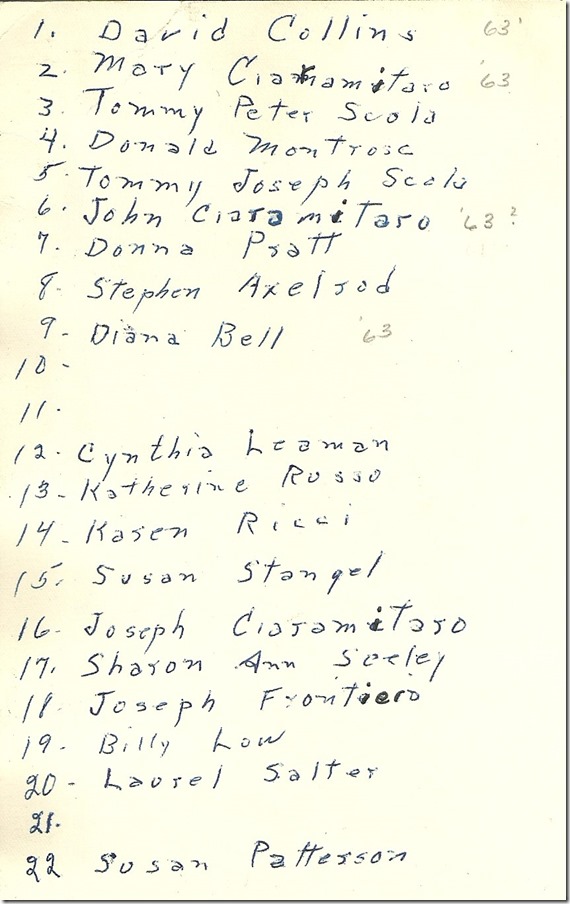 1. David Collins 63'
2. Mary Ciaramitaro '63
3. Tommy Peter Scola
4. Donald Montrose
5. Tommy Joseph Scola
6. John Ciaramitaro '63?
7. Donna Pratt
8. Stephen Axelrod
9. Diana Bell '63
10-
11.
12. Cynthia Leaman
13- Katherine Russo
14- Karen Ricci
15. Susan Stangel
16- Joseph Ciaramitaro
17. Sharon Ann Seeley
18. Joseph Frontiero
19. Billy Low
20- Laurel Salter
21.
22 Susan Patterson